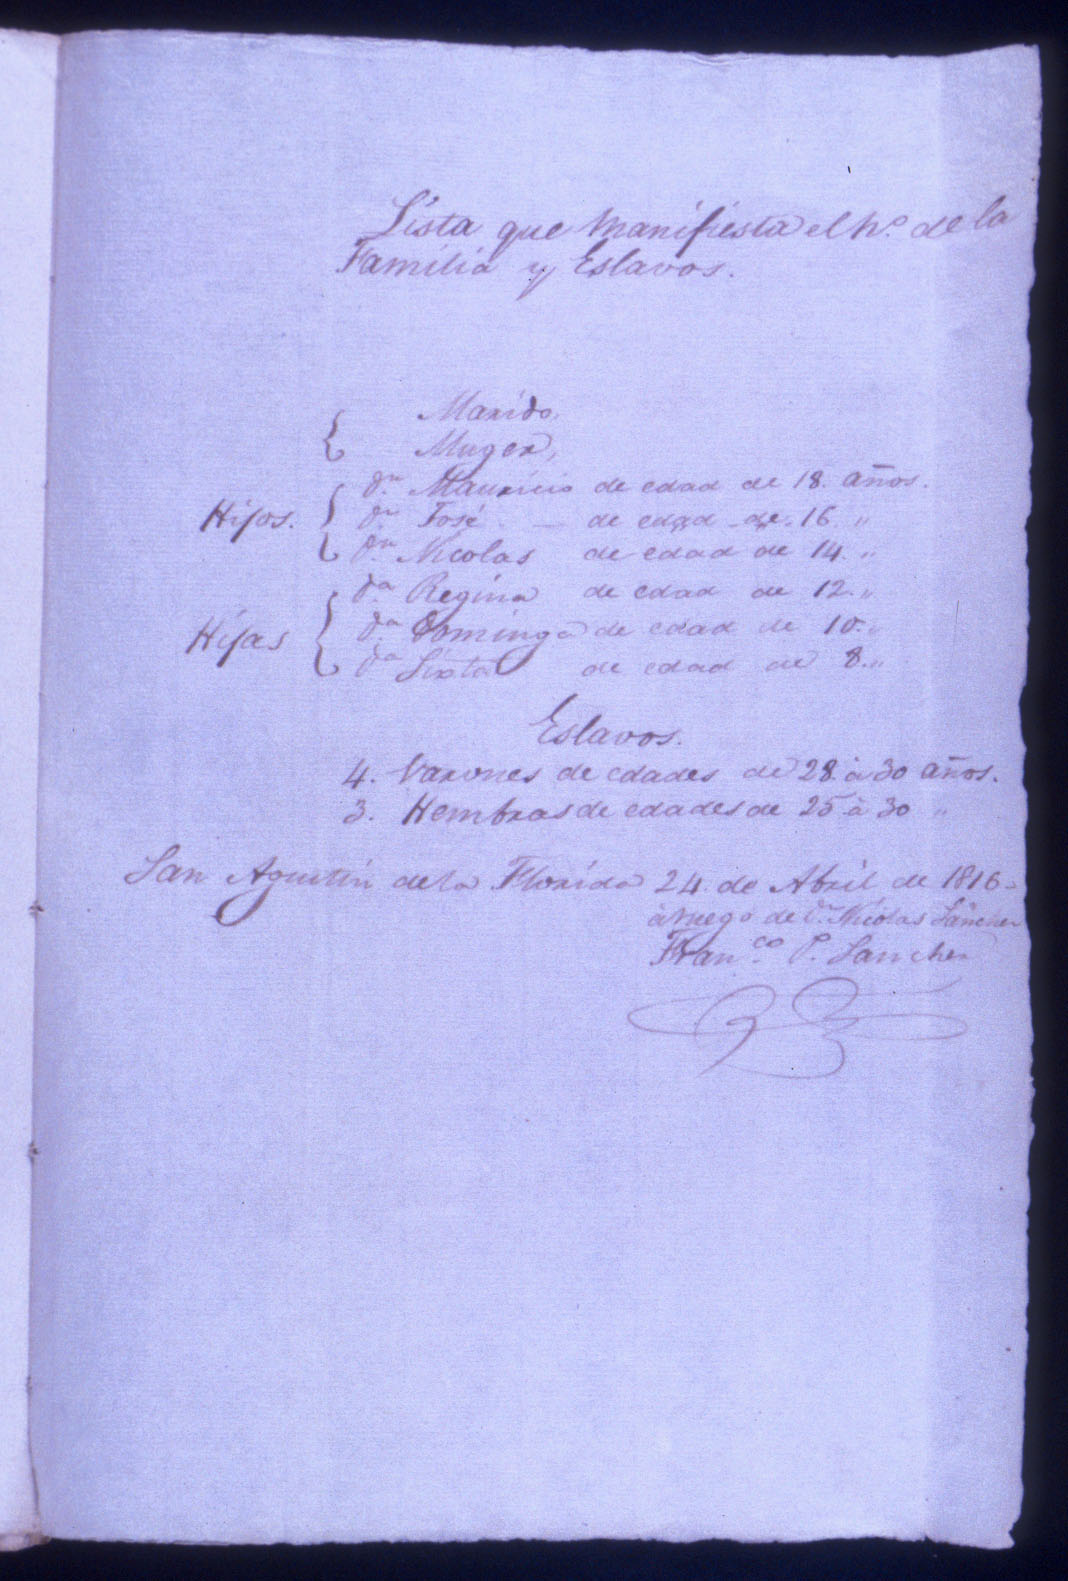 Lista que Manifiesta el n.º de la
Familia y Eslavos.
Marido,
Muger,
Dn. Mauricio de edad de 18. años.
Hijos. Dn. José. — de edad de 16. "
Dn. Nicolas de edad de 14. "
Da. Regina de edad de 12. "
Hijas Da. Dominga de edad de 10. "
Da. Sixta de edad de 8. "
Eslavos.
4. Varones de edades de 28 à 30 años.
3. Hembras de edades de 25 à 30 "
San Agustin de la Florida 24. de Abril de 1816 =
à ruego de Dn. Nicolas Sanchez
Fran.co P. Sanchez